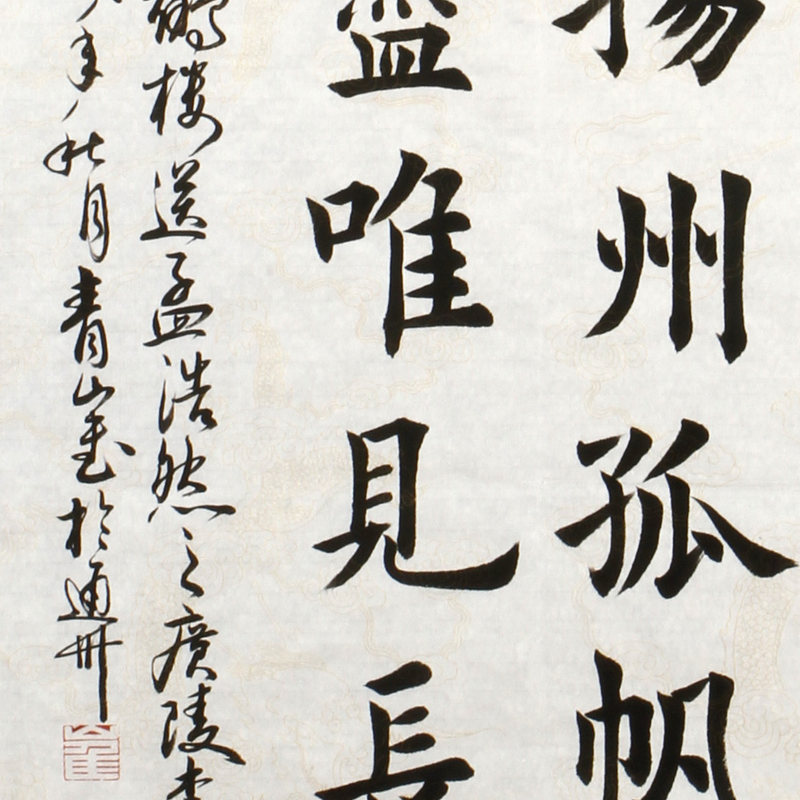 揚州孤帆
盡唯見長
鶴樓送孟浩然之廣陵李
年秋月青山書於通州